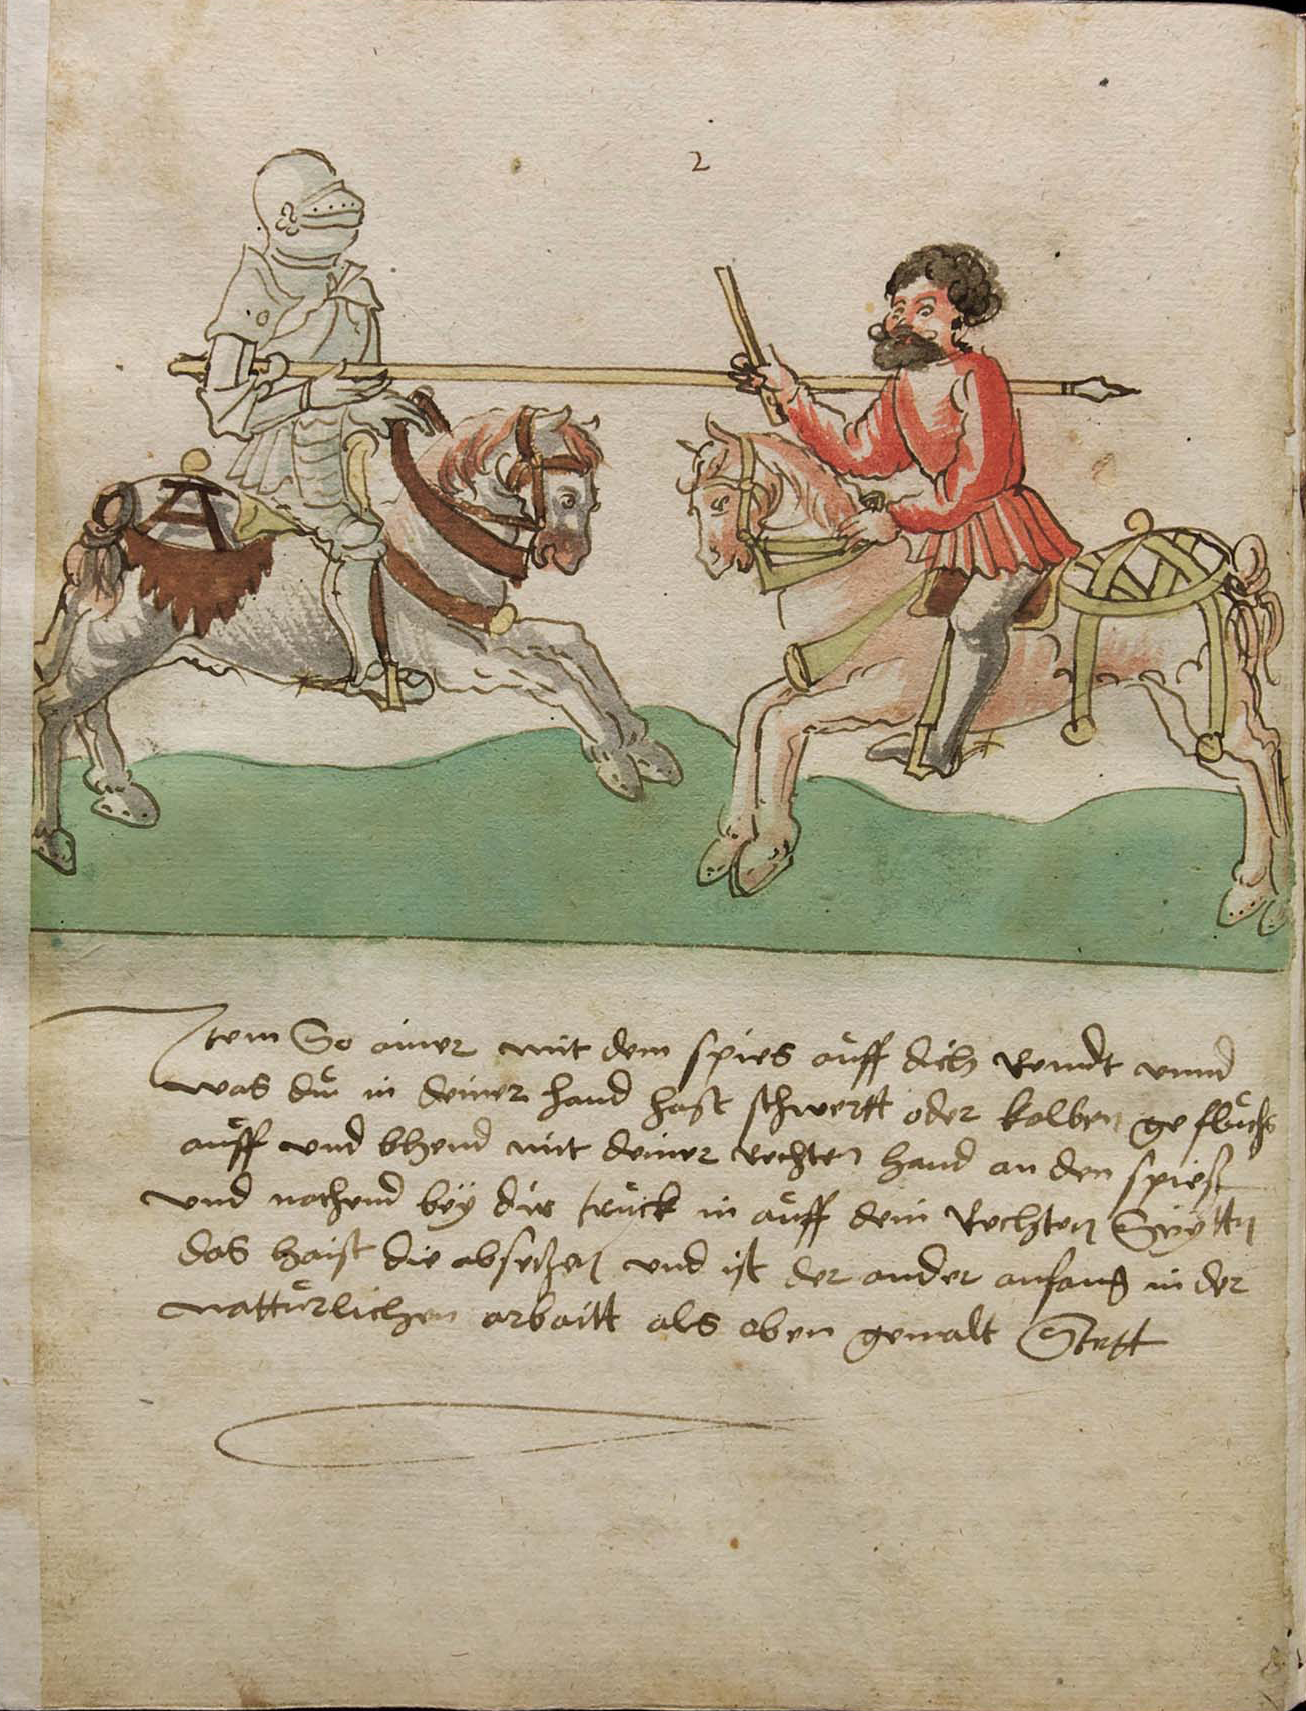 2
Item So ainer mit dem spies auff dich Rendt vnnd
was du in deiner hand hast schwertt oder kolben ge fluchs
auff vnd bhend mit deiner Rechten hand an den spiesß
vnd nachend bÿ dir truck in auff dein Rechten Seÿttn
das haist die absetzen vnd ist der ander anfang in der
natturlichen arbaitt als oben gemalt Stett